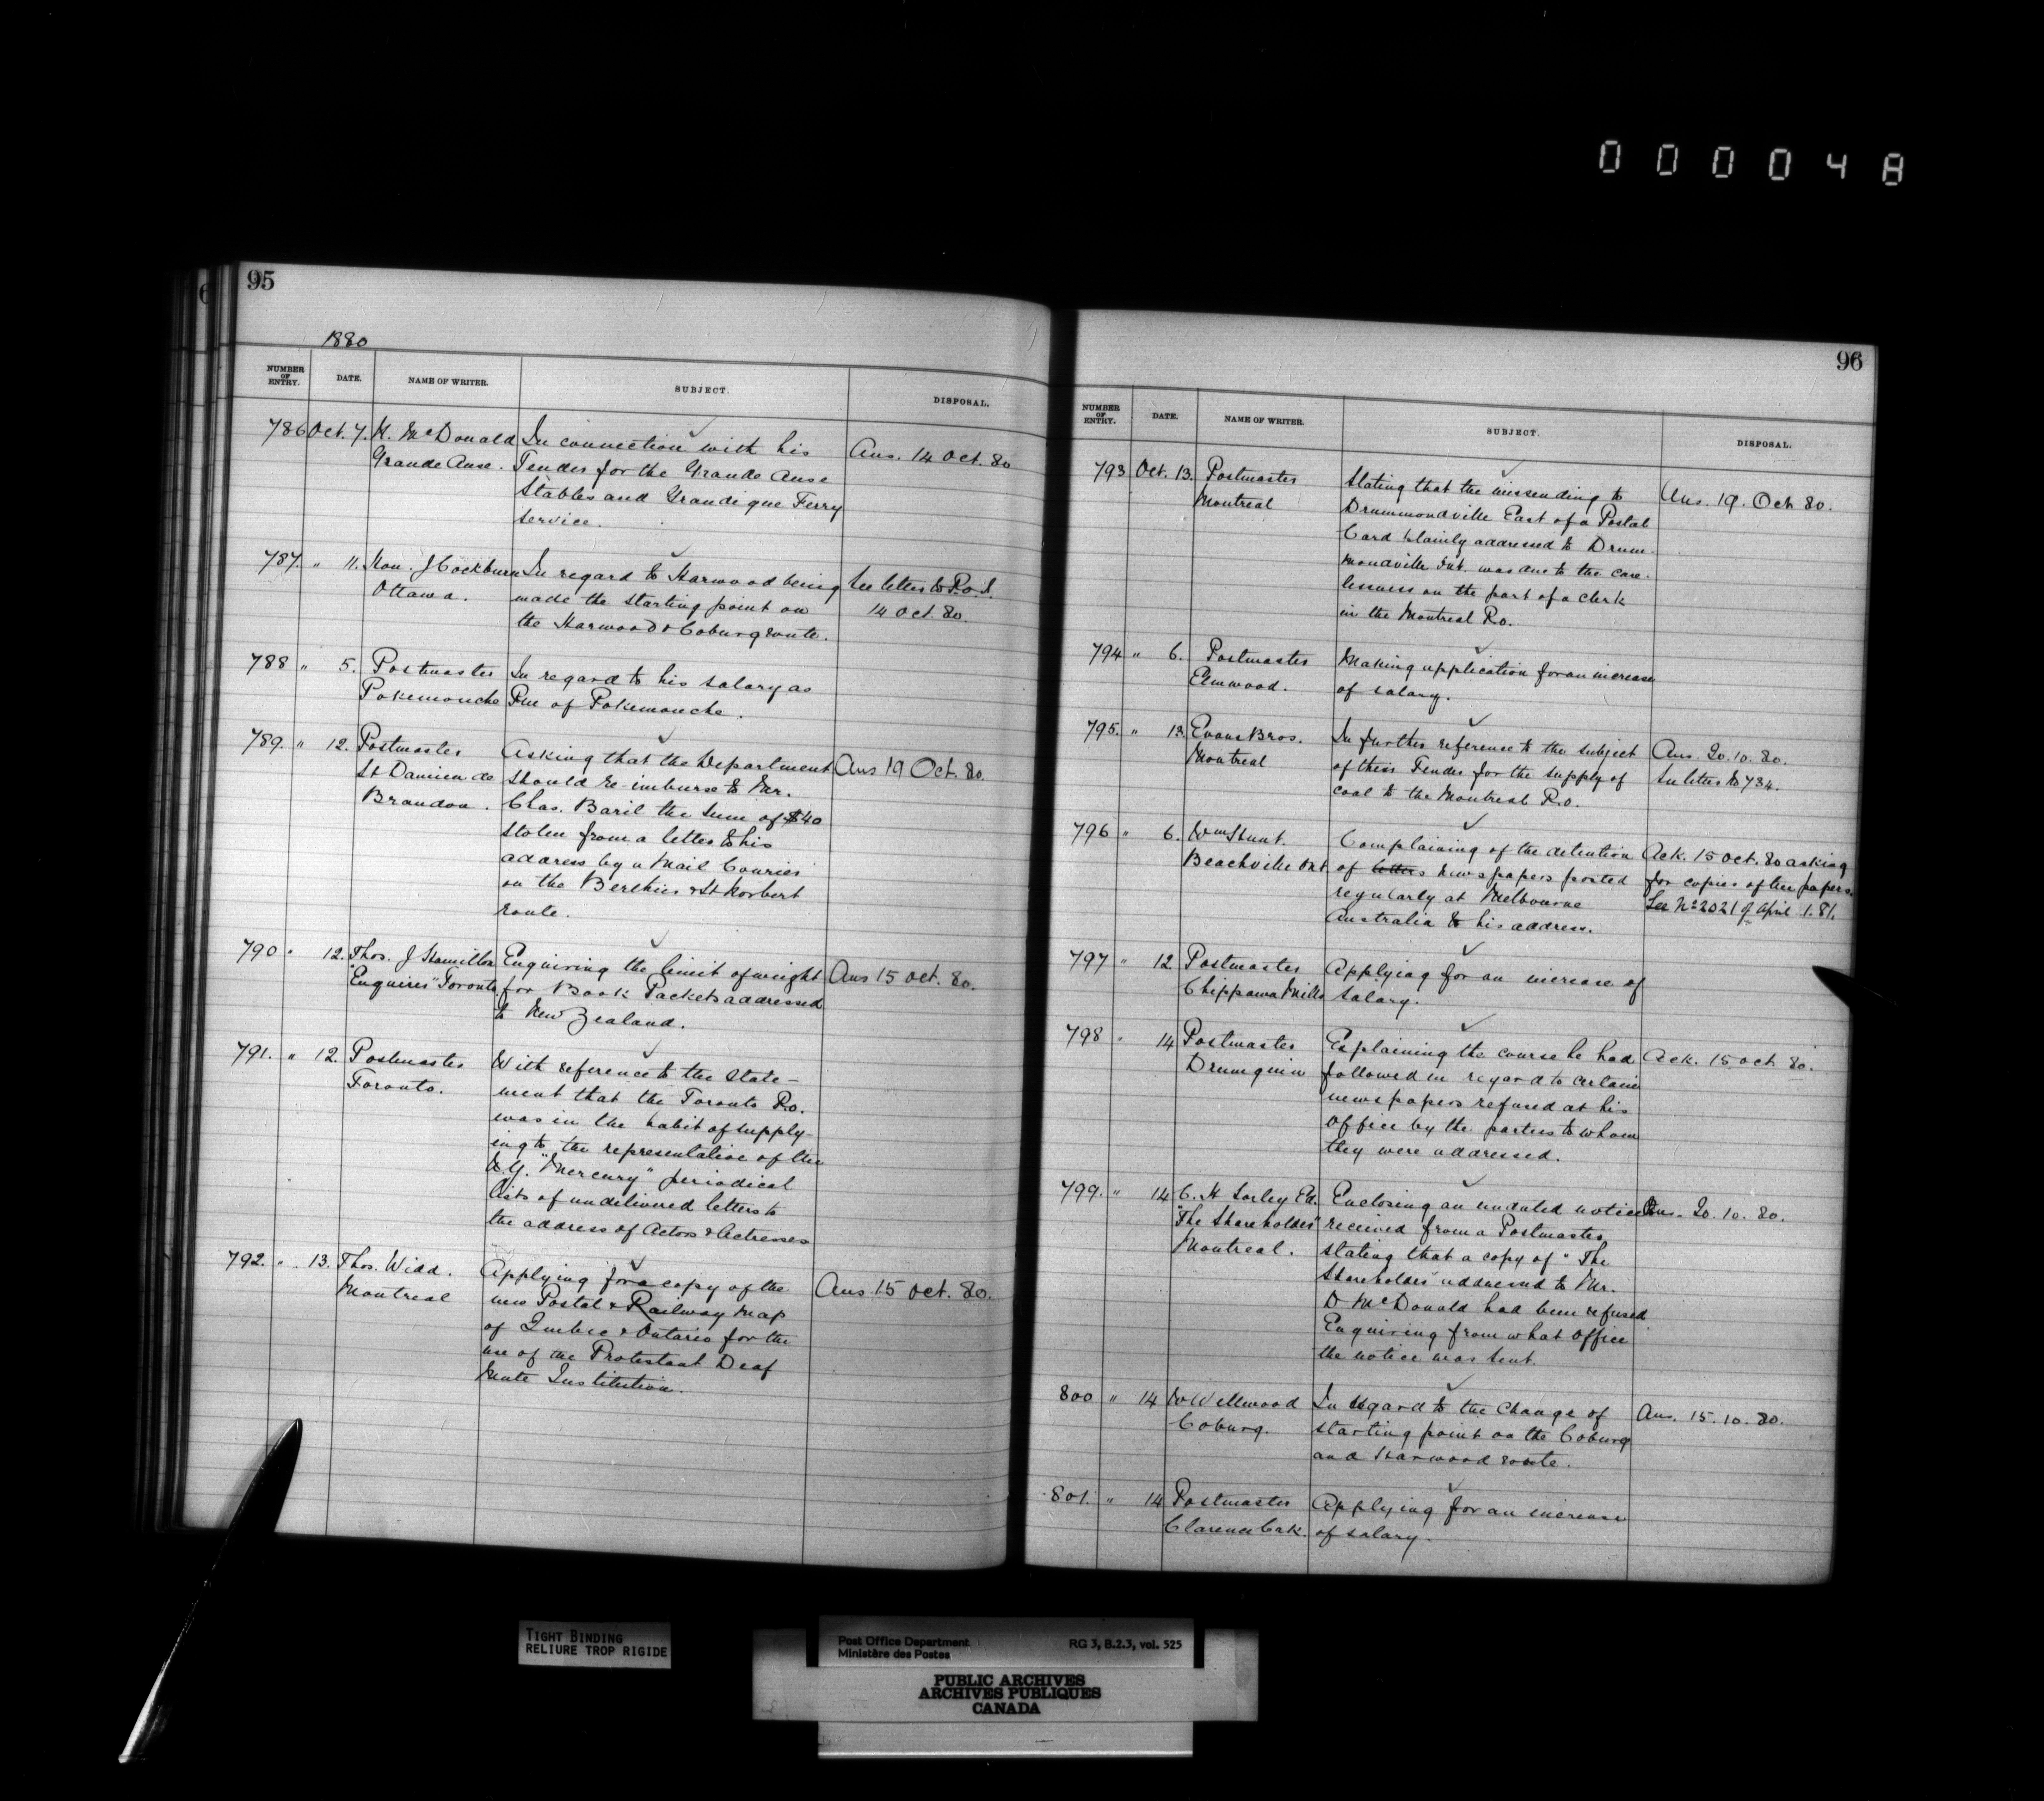 000048
95
1880
NUMBER OF ENTRY. DATE. NAME OF WRITER. SUBJECT. DISPOSAL.
786 Oct. 7. McDonald In connection with his Ans. 14 Oct. 80
Grande Anse. Tender for the Grande Anse
Stables and Grandigue Ferry
Service.
787. " 11. Hon. J Cockburn In regard to Harwood being See letter to P.O.I.
Ottawa. made the starting point on 14 Oct. 80.
the Harwood & Coburg route.
788 " 5. Postmaster In regard to his salary as
Pokemouche Pm of Pokemouche.
789. " 12. Postmaster Asking that the Department Ans 19 Oct. 80.
St Damien de should re-imburse to Mr.
Brandon. Chas. Baril the sum of $40
stolen from a letter to his
address by a Mail Courier
on the Berthier & St Norbert
route.
790 " 12. Thos. J Hamilton Enquiring the limit of weight Ans 15 Oct. 80.
"Enquirer" Toronto for Book Packets addressed
to New Zealand.
791. " 12. Postmaster With reference to the State-
Toronto. ment that the Toronto P.O.
was in the habit of supply-
ing to the representative of the
N.Y. "Mercury" periodical
lists of undelivered letters to
the address of Actors & Actresses
792. " 13. Thos. Widd. Applying for a copy of the Ans 15 Oct. 80.
Montreal new Postal & Railway Map
of Quebec & Ontario for the
use of the Protestant Deaf
Mute Institution.
96
NUMBER OF ENTRY. DATE. NAME OF WRITER. SUBJECT. DISPOSAL.
793 Oct. 13. Postmaster Stating that the missending to Ans. 19. Oct 80.
Montreal Drummondville East of a Postal
Card plainly addressed to Drum-
mondville Ont. was due to the care-
lessness on the part of a clerk
in the Montreal P.O.
794 " 6. Postmaster Making application for an increase
Elmwood. of salary.
795. " 13. Evans Bros. In further reference to the subject Ans. 20.10.80.
Montreal of their Tender for the supply of See letter to 784.
coal to the Montreal P.O.
796 " 6. Wm Hunt. Complaining of the detention Ack. 15 Oct. 80 asking
Beachville Ont. of letters newspapers posted for copies of the papers.
regularly at Melbourne See No 2021 of April 1. 81.
Australia to his address.
797 " 12 Postmaster Applying for an increase of
Chippawa Mills salary.
798 " 14 Postmaster Explaining the course he had Ack. 15 Oct 80.
Drumquin followed in regard to certain
newspapers refused at his
Office by the parties to whom
they were addressed.
799. " 14 C. H Sorley Ed. Enclosing an undated notice Ans. 20.10.80.
"The Shareholder" received from a Postmaster
Montreal. stating that a copy of "The
Shareholder" addressed to Mr.
D McDonald had been refused
Enquiring from what Office
the notice was sent.
800 " 14 W Wellwood In regard to the change of Ans. 15.10.80.
Coburg. starting point on the Coburg
and Harwood route.
801. " 14 Postmaster Applying for an increase
of salary.
TIGHT BINDING
RELIURE TROP RIGIDE
Post Office Department RG 3, B.2.3, vol. 525
Ministère des Postes
PUBLIC ARCHIVES
ARCHIVES PUBLIQUES
CANADA